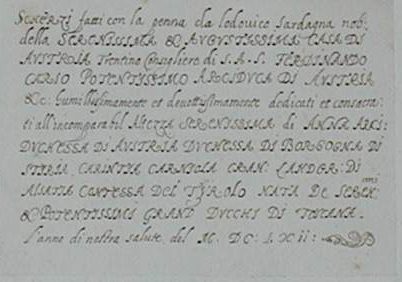 SCHERZI fatti con la penna da lodovico Sardagna nob:
della SERENISSIMA & AUGUSTISSIMA CASA DI
AVSTRIA Trentino Consigliero di S. A. S. FERDINANDO
CARLO POTENTISSIMO ARCIDUCA DI AVSTRIA
&c: humillissimamente et devotissimamente dedicati et consacra-
ti all'incomparabil Altezza SERENISSIMA di ANNA ARCI:
DUCHESSA DI AVSTRIA DUCHESSA DI BORGOGNA DI
STIRIA CARINTIA CARNIOLA CRAN: LANDGR: DI
ALSATIA CONTESSA DEL TYROLO NATA DE SEREN:
& POTENTISSIMI GRAND DUCHI DI TOSCANA.
l'anno di nostra salute del M. DC: LXII: